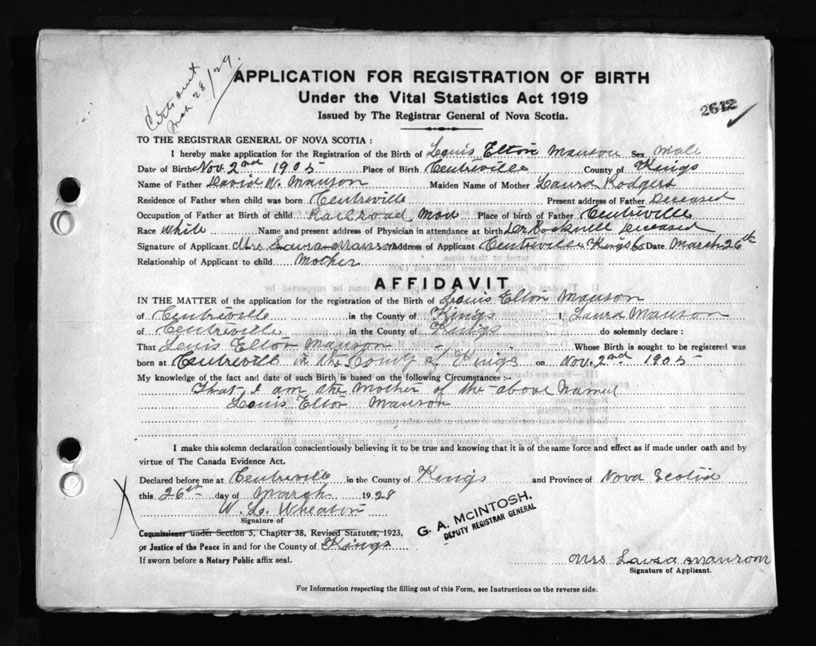 Cert out
Mch 28/29.
APPLICATION FOR REGISTRATION OF BIRTH
Under the Vital Statistics Act 1919
Issued by The Registrar General of Nova Scotia.
2642
TO THE REGISTRAR GENERAL OF NOVA SCOTIA :
I hereby make application for the Registration of the Birth of Louis Elton Manson Sex Male
Date of Birth Nov. 2nd 1905 Place of Birth Centreville County of Kings
Name of Father David W. Manson Maiden Name of Mother Laura Rodgers
Residence of Father when child was born Centreville Present address of Father Deceased
Occupation of Father at Birth of child Railroad Man Place of birth of Father Centreville
Race White Name and present address of Physician in attendance at birth Dr Rockwell Deceased
Signature of Applicant Mrs Laura Manson Address of Applicant Centreville Kings Co Date March 26th
Relationship of Applicant to child Mother
AFFIDAVIT
IN THE MATTER of the application for the registration of the Birth of Louis Elton Manson
of Centreville in the County of Kings I, Laura Manson
of Centreville in the County of Kings do solemnly declare :
That Louis Elton Manson Whose Birth is sought to be registered was
born at Centreville in the County of Kings on Nov. 2nd 1905
My knowledge of the fact and date of such Birth is based on the following Circumstances :-
That I am the Mother of the above Named
Louis Elton Manson
I make this solemn declaration conscientiously believing it to be true and knowing that it is of the same force and effect as if made under oath and by
virtue of The Canada Evidence Act.
Declared before me at Centreville in the County of Kings and Province of Nova Scotia
this 26th day of March 1928
W. L. Wheaton
Signature of
Commissioner under Section 5, Chapter 38, Revised Statutes, 1923,
or Justice of the Peace in and for the County of Kings
If sworn before a Notary Public affix seal.
G. A. McINTOSH,
DEPUTY REGISTRAR GENERAL
Mrs Laura Manson
Signature of Applicant.
For Information respecting the filling out of this Form, see Instructions on the reverse side.